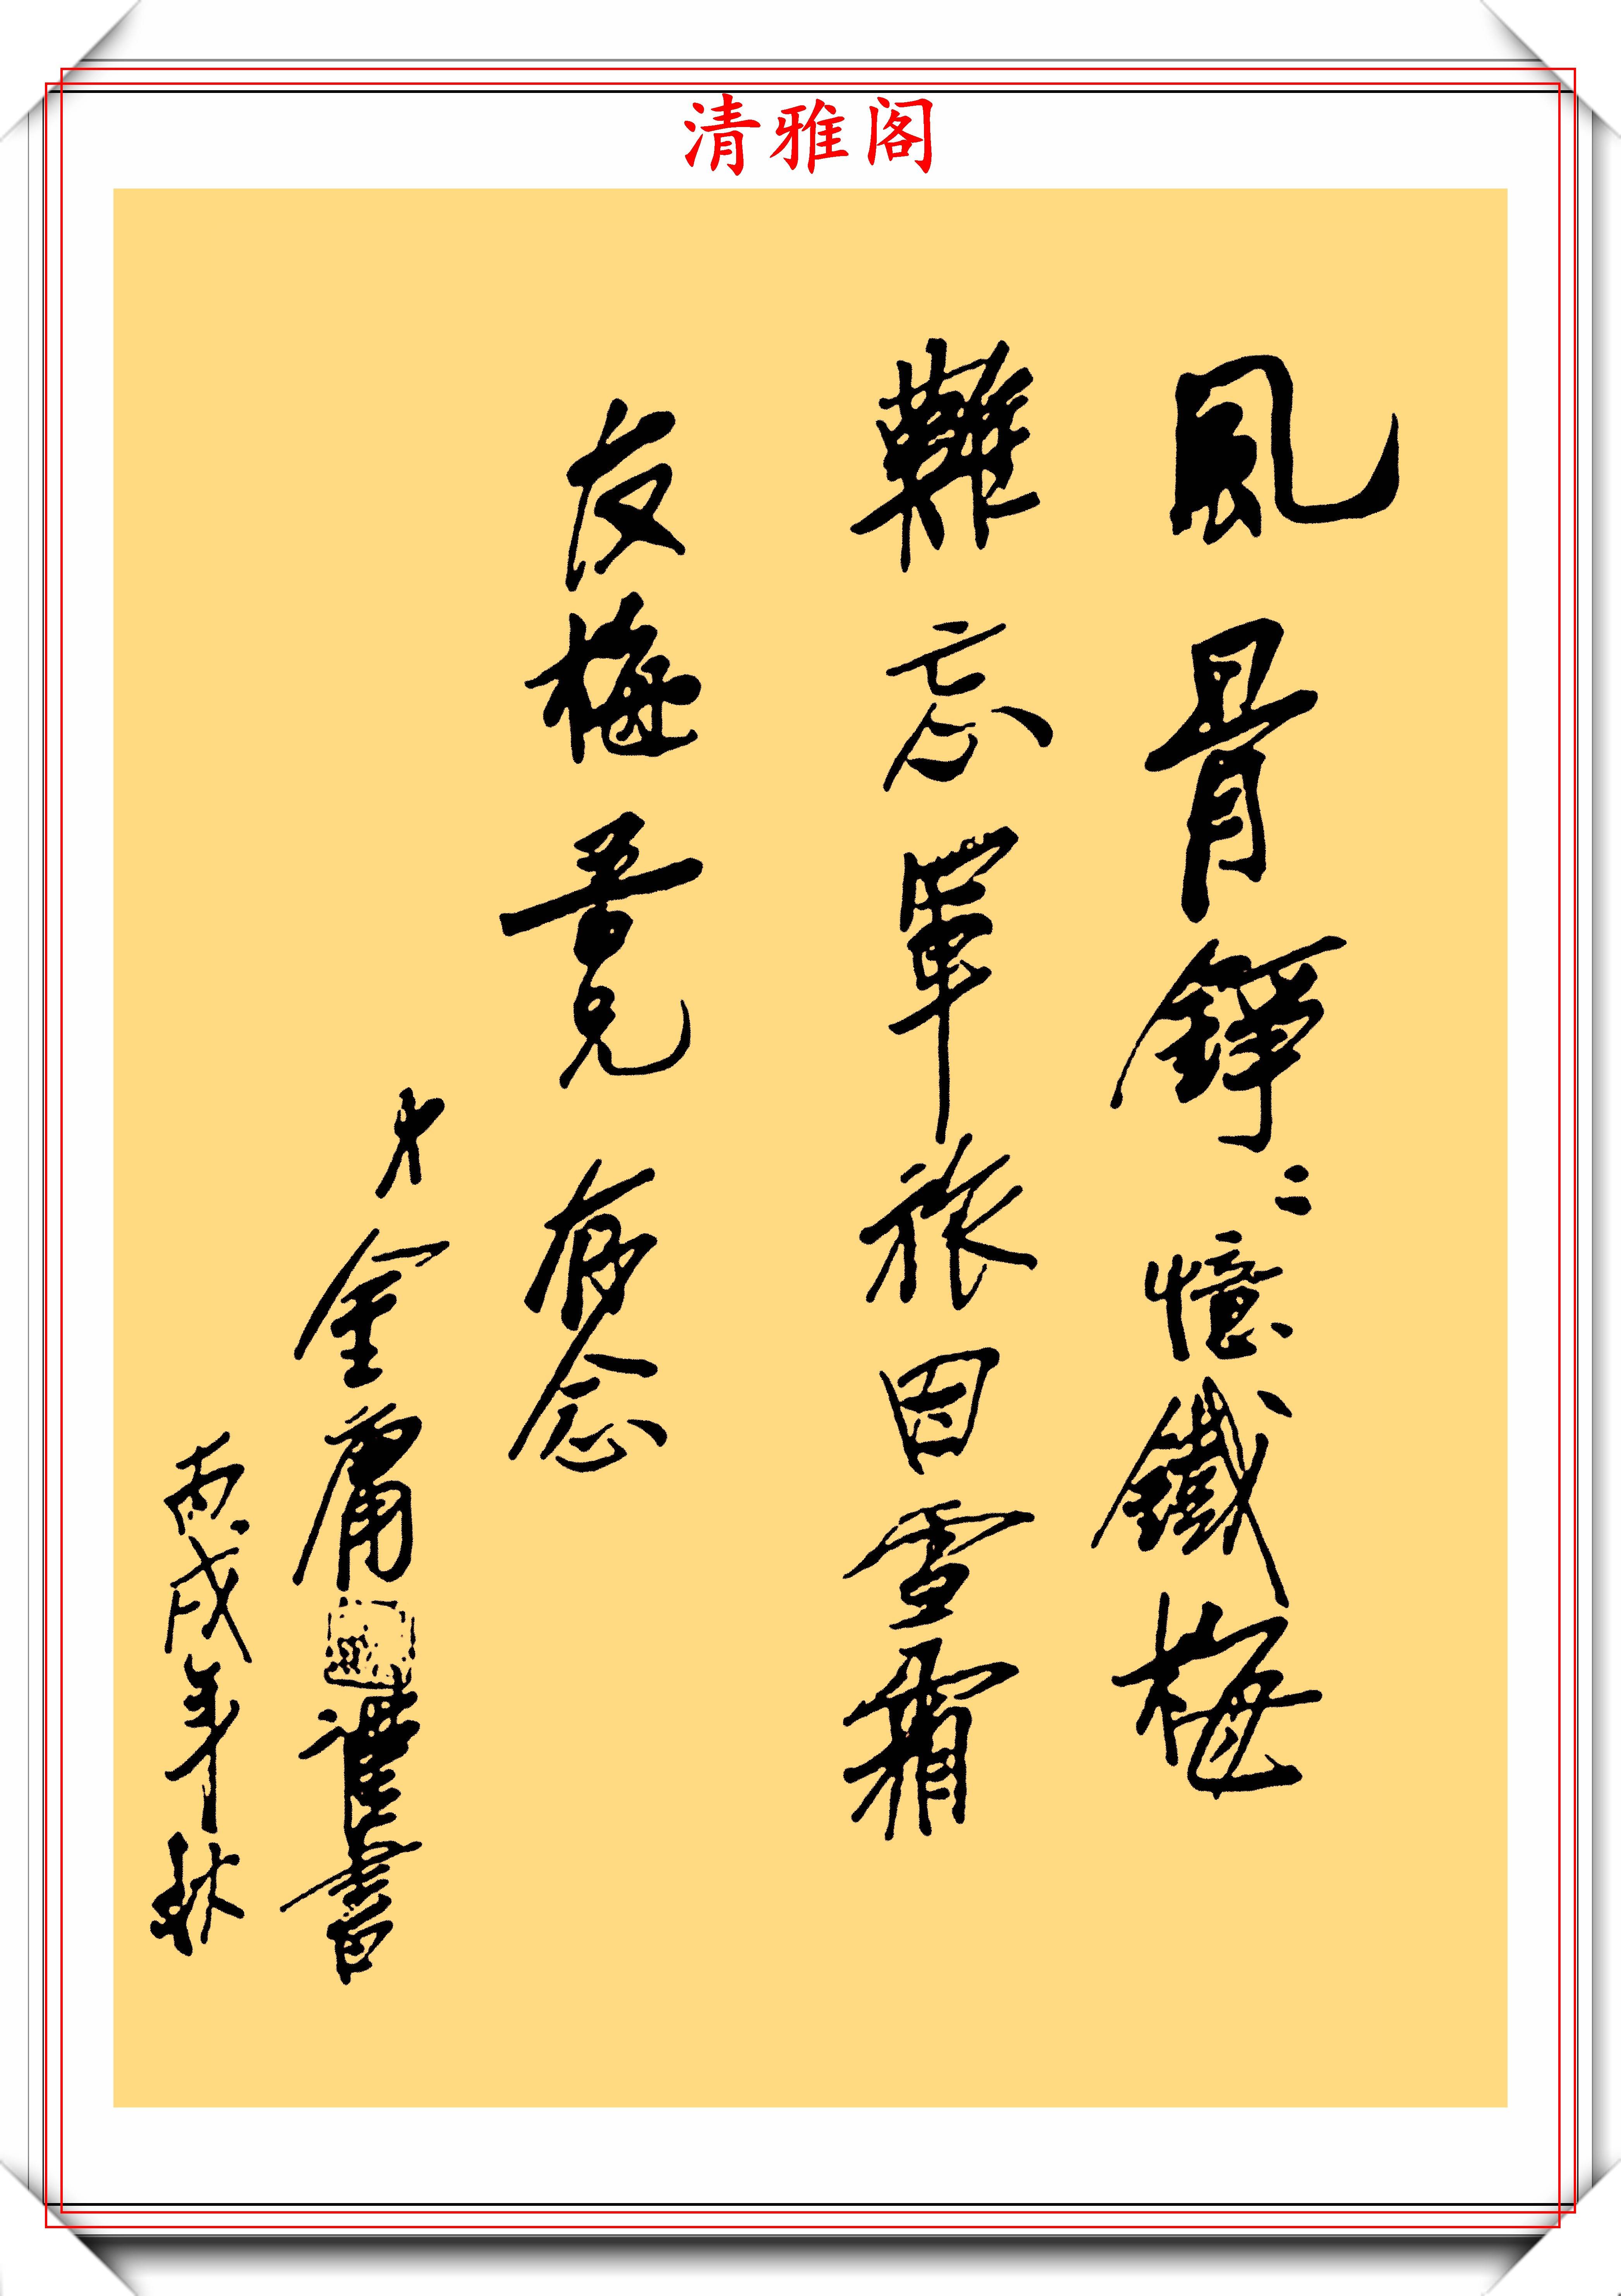 清雅阁
風骨錚〻憶鐵梅
難忘軍旅因雪霜
友梅書兄存念
弟金庸謹書
丙戌年秋